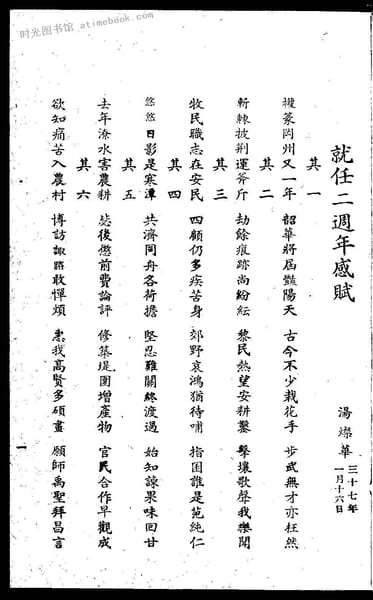 时光图书馆 atimebook.com
就任二週年感賦
湯燦華 三十七年一月十六日
其一
攏篆岡州又一年 韶華將屆豔陽天 古今不少栽花手 步武無才亦枉然
其二
斬棘披荆運斧斤 劫餘痕跡尚紛紜 黎民熱望安耕鑿 擊壤歌聲我樂聞
其三
牧民職志在安民 四顧仍多疾苦身 郊野哀鴻猶待哺 指囷誰是范純仁
其四
悠悠日影是寒潭 共濟同舟各荷擔 堅忍難關終渡過 始知諫果味回甘
其五
去年潦水害農耕 毖後懲前費論評 修築堤圍增產物 官民合作早觀成
其六
欲知痛苦入農村 博訪諏諮敢憚煩 惠我高賢多碩畫 願師禹聖拜昌言
一